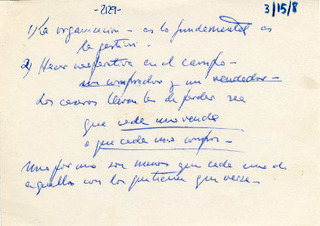 -2129-
3/15/8
1) La organización - es lo fundamental es
la gestión.
2) Hacer cooperativa en el campo -
un comprador y un vendedor -
Los caseros llevan las de perder sea
que cada uno venda
o que cada uno compre -
uno por uno son menos que cada uno de
aquellos con los que tienen que verse -